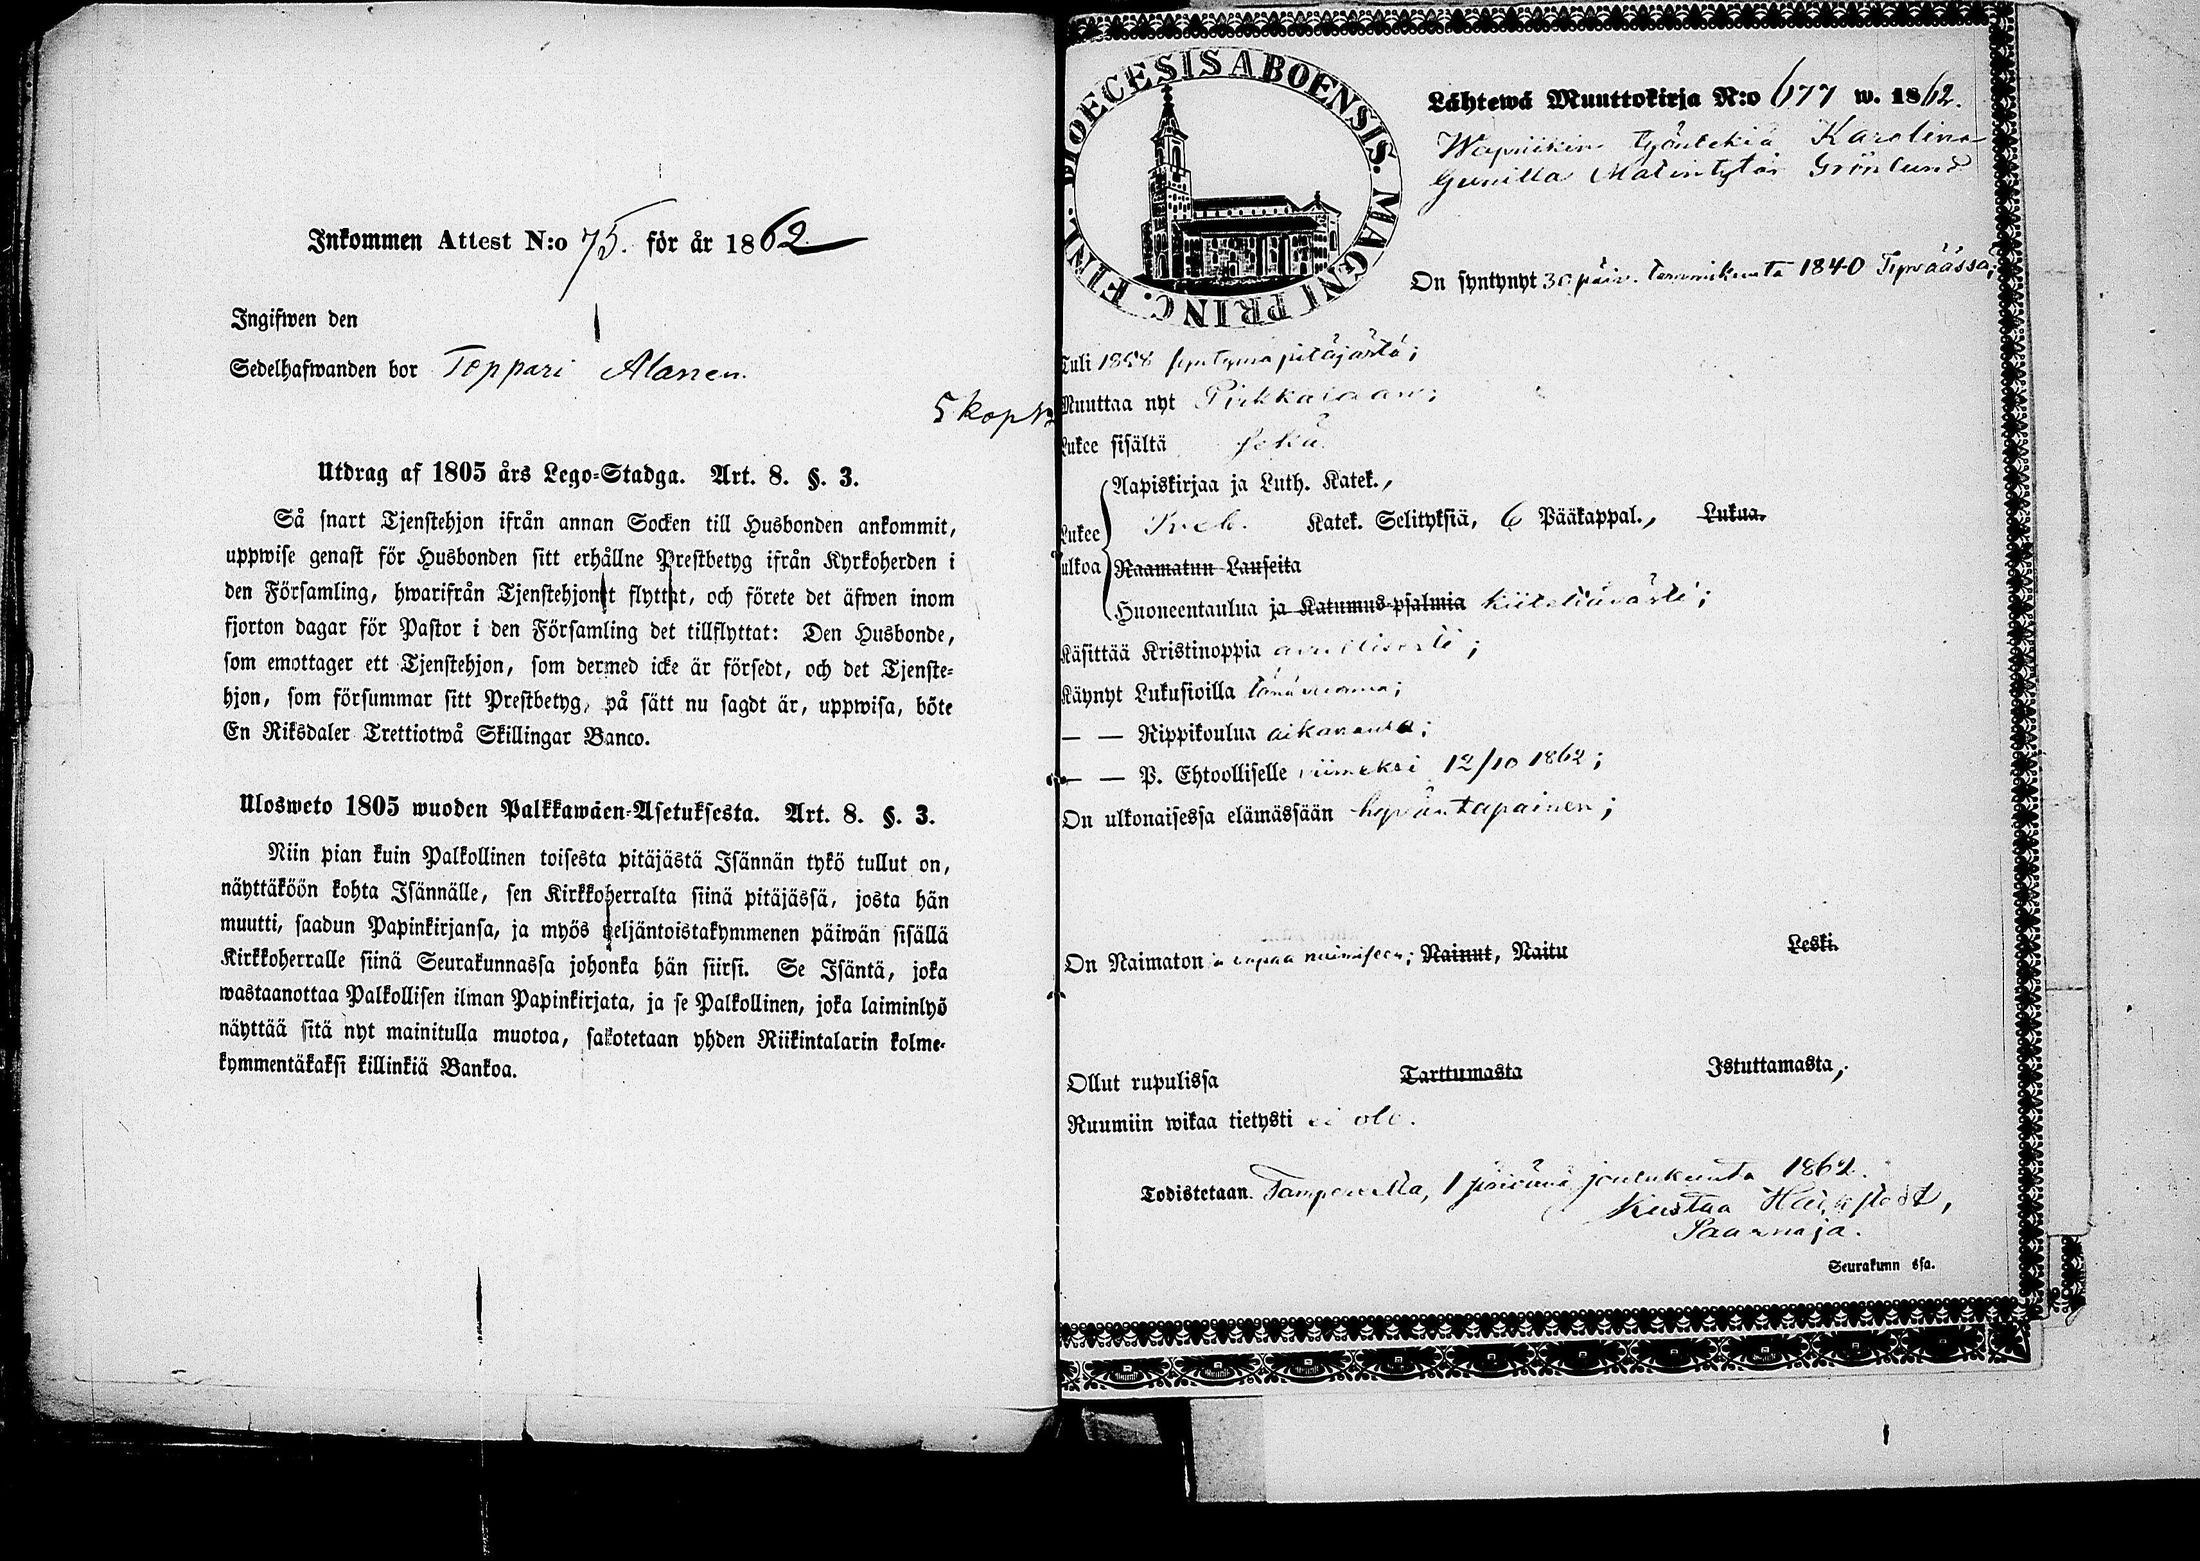 Inkommen Attest N:o 75. för år 1862
Ingifwen den
Sedelhafwanden bor Toppari Alanen.
5 kop
Utdrag af 1805 års Lego-Stadga. Art. 8. §. 3.
Så snart Tjenstehjon ifrån annan Socken till Husbonden ankommit,
uppwise genast för Husbonden sitt erhållne Prestbetyg ifrån Kyrkoherden i
den Församling, hwarifrån Tjenstehjonet flyttat, och förete det äfwen inom
fjorton dagar för Pastor i den Församling det tillflyttat: Den Husbonde,
som emottager ett Tjenstehjon, som dermed icke är försedt, och det Tjenste-
hjon, som försummar sitt Prestbetyg, på sätt nu sagdt är, uppwisa, böte
En Riksdaler Trettiotwå Skillingar Banco.
Ulosweto 1805 wuoden Palkkawäen-Asetuksesta. Art. 8. §. 3.
Niin pian kuin Palkollinen toisesta pitäjästä Isännän tykö tullut on,
näyttäköön kohta Isännälle, sen Kirkkoherralta siinä pitäjässä, josta hän
muutti, saadun Papinkirjansa, ja myös neljäntoistakymmenen päiwän sisällä
Kirkkoherralle siinä Seurakunnassa johonka hän siirsi. Se Isäntä, joka
wastaanottaa Palkollisen ilman Papinkirjata, ja se Palkollinen, joka laiminlyö
näyttää sitä nyt mainitulla muotoa, sakotetaan yhden Riikintalarin kolme-
kymmentäkaksi killinkiä Bankoa.
DIOECESIS ABOENSIS. MAGNI PRINC. FINL.
Lähtewä Muuttokirja N:o 677 w. 1862.
Wapriikin työntekiä Karolina
Gunilla Matintytär Grönlund
On syntynyt 30 päiv. tammikuuta 1840 Tyrväässä;
Tuli 1858 syntymäpitäjästä;
Muuttaa nyt Pirkkalaan;
Lukee sisältä selvä.
Aapiskirjaa ja Luth. Katek.,
Lukee Katek. Selityksiä, 6 Pääkappal., Lukua.
ulkoa Raamatun Lauseita
Huoneentaulua ja Katumus-psalmia kiitettävästi;
Käsittää Kristinoppia avullisesti;
Käynyt Lukusioilla tänä vuonna;
— — Rippikoulua aikanansa;
— — P. Ehtoolliselle viimeksi 12/10 1862;
On ulkonaisessa elämässään hyväntapainen;
On Naimaton ja vapaa naimiseen; Nainut, Naitu Leski.
Ollut rupulissa Tarttumasta Istuttamasta,.
Ruumiin wikaa tietysti ei ole.
Todistetaan. Tampereella, 1 päivänä joulukuuta 1862.
Kustaa
Saarnaja.
Seurakunn ssa.